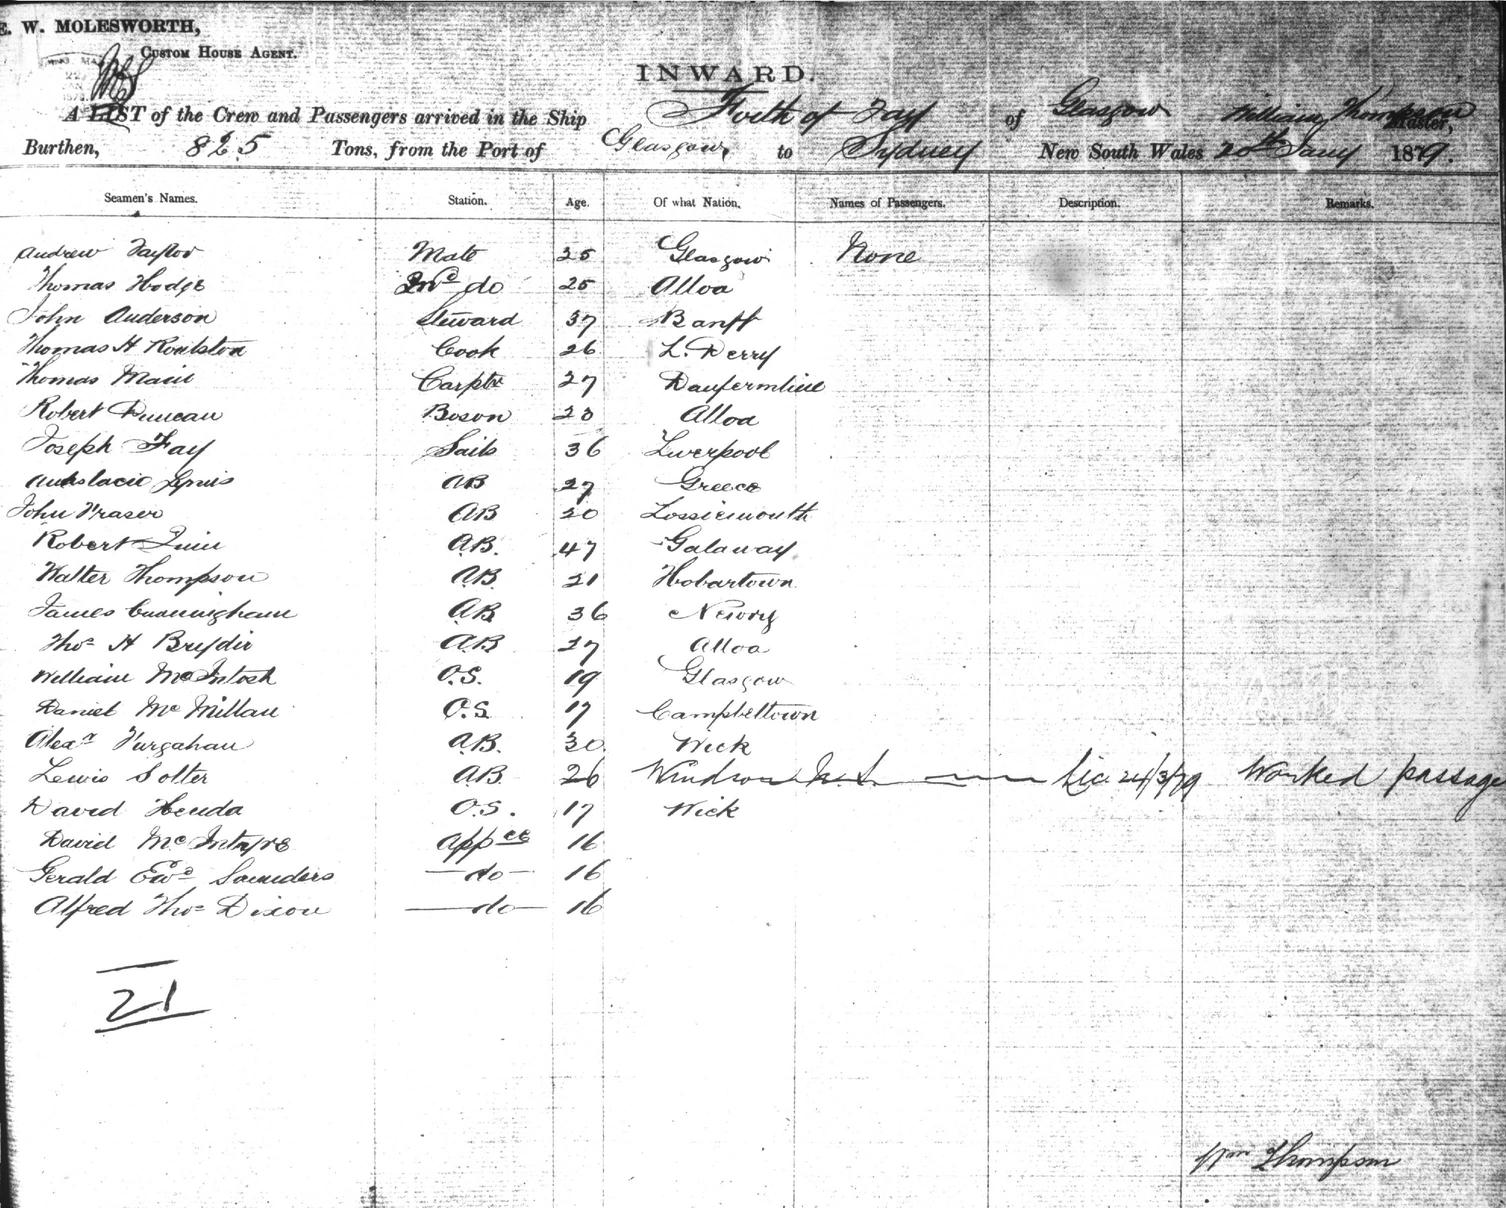 E. W. MOLESWORTH,
CUSTOM HOUSE AGENT.
INWARD.
A LIST of the Crew and Passengers arrived in the Ship of Glasgow William Thompson Master,
Burthen, 825 Tons, from the Port of Glasgow, to Sydney New South Wales 20th Jany 1879.
Seamen's Names. Station. Age. Of what Nation. Names of Passengers. Description. Remarks.
Andrew Taylor Mate 25 Glasgow None
Thomas Hodge 2nd do 25 Alloa
John Anderson Steward 37 Banff
Thomas H Roulston Cook 26 L. Derry
Thomas Carptr 27 Daufermline
Robert Duncan Boson 23 Alloa
Joseph Fay Sails 36 Liverpool
AB 27 Greece
John Fraser AB 20 Lossiemouth
Robert A.B. 47 Galaway
Walter Thompson A.B. 21 Hobartown
James Cunningham AB 36 Newry
Thos H Brydie AB 27 Alloa
William McIntosh O.S. 19 Glasgow
Daniel McMillan O.S. 17 Campbeltown
Alexr A.B. 30. Wick
Lewis Solter A.B. 26 Windsor N.S. Lic. 24/3/79 Worked passage
David O.S. 17 Wick
David McIntyre Appce 16
Gerald Ewd Saunders do 16
Alfred Thos Dixon do 16
21
Wm Thompson